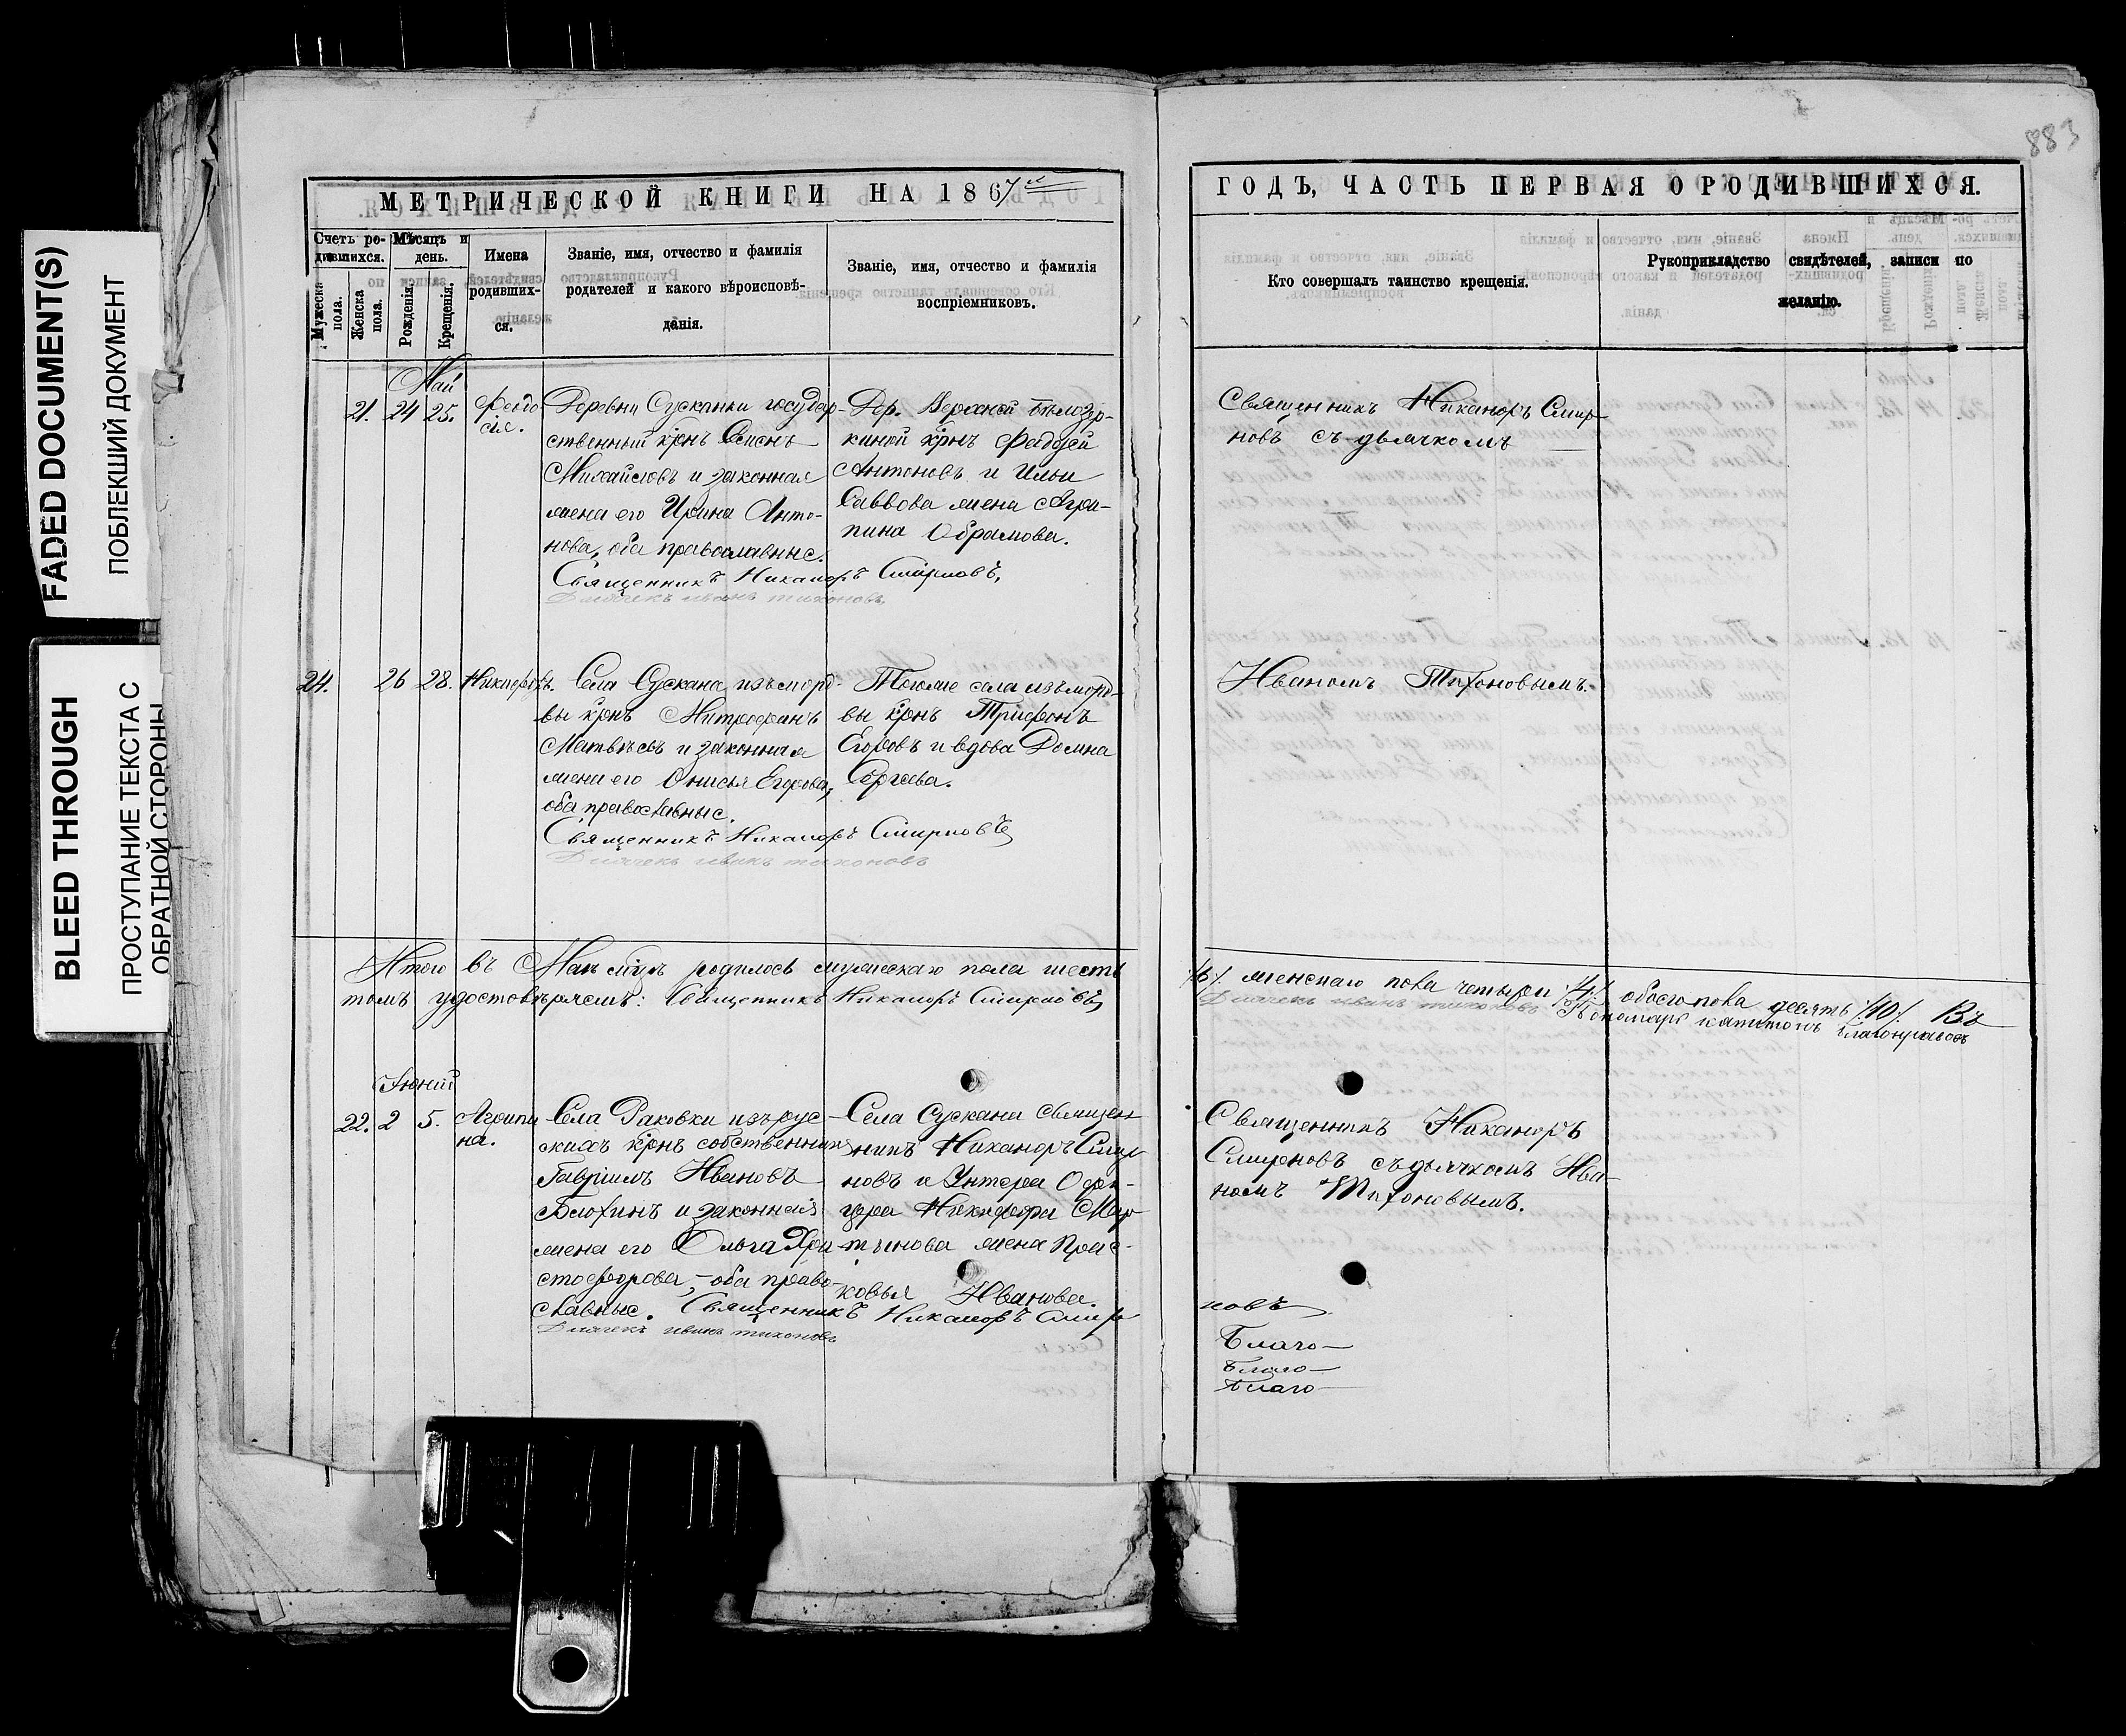 883
FADED DOCUMENT(S)
ПОБЛЕКШИЙ ДОКУМЕНТ
BLEED THROUGH
ПРОСТУПАНИЕ ТЕКСТА С
ОБРАТНОЙ СТОРОНЫ
МЕТРИЧЕСКОЙ КНИГИ НА 1867й
Счетъ ро-
дившихся.
Мѣсяцъ и
день.
Мужеска
пола.
Женска
пола.
Рожденія.
Крещенія.
Имена
родивших-
ся.
Званіе, имя, отчество и фамилія
родателей и какого вѣроисповѣ-
данія.
Званіе, имя, отчество и фамилія
воспріемниковъ.
Май
21. 24 25.
Феодо-
сія.
Деревни Сусканки государ-
ственный крнъ
Михайловъ и законная
жена его Ирина Анто-
нова, оба православные.
Священникъ Никаноръ Смирновъ,
Дьячекъ иванъ тихоновъ
Дер. Верхней Бѣлозер-
киной крнъ Федосей
Антоновъ и Ильи
Саввова жена Агри-
пина Обрамова.
24. 26 28. Никифоръ.
Села Сускана изъ морд-
вы крнъ Митрофанъ
Матвѣевъ и законная
жена его Онисья Егорова,
оба православные.
Священникъ Никаноръ Смирновъ
Дьячекъ иванъ тихоновъ
Тогоже села изъ морд-
вы крнъ Трифонъ
Егоровъ и вдова Домна
Сергеева.
Итого въ Маѣ мѣцѣ родилось мужескаго пола шесть
томъ удостовѣряемъ: Священникъ Никаноръ Смирновъ
Іюній
22. 2 5.
Агрипи
на.
Села Раковки изъ рус-
скихъ крнъ собственникъ
Гавріилъ Ивановъ
Блохинъ и законная
жена его Ольга Хри-
стофорова, - оба право-
славные. Священникъ Никаноръ Смир
Дьячекъ иванъ тихоновъ
Села Сускана священ
никъ Никаноръ Смир-
новъ и Унтеръ Офи-
цера Никифора Мар-
тынова жена Прас-
ковья Иванова.
ГОДЪ, ЧАСТЬ ПЕРВАЯ О РОДИВШИХСЯ.
Кто совершалъ таинство крещенія.
Рукоприкладство свидѣтелей, записи по
желанію.
Священникъ Никаноръ Смир-
новъ съ дьячкомъ
Иваномъ Тихоновымъ.
/6/. женскаго пола четыри /4/. обоего пола десять /10/. Въ
Дьячекъ иванъ тихоновъ Пономарь капитонъ благонравовъ
Священникъ Никаноръ
Смирновъ съ дьячкомъ Ива-
номъ Тихоновымъ.
новъ
Благо-
Благо-
Благо-